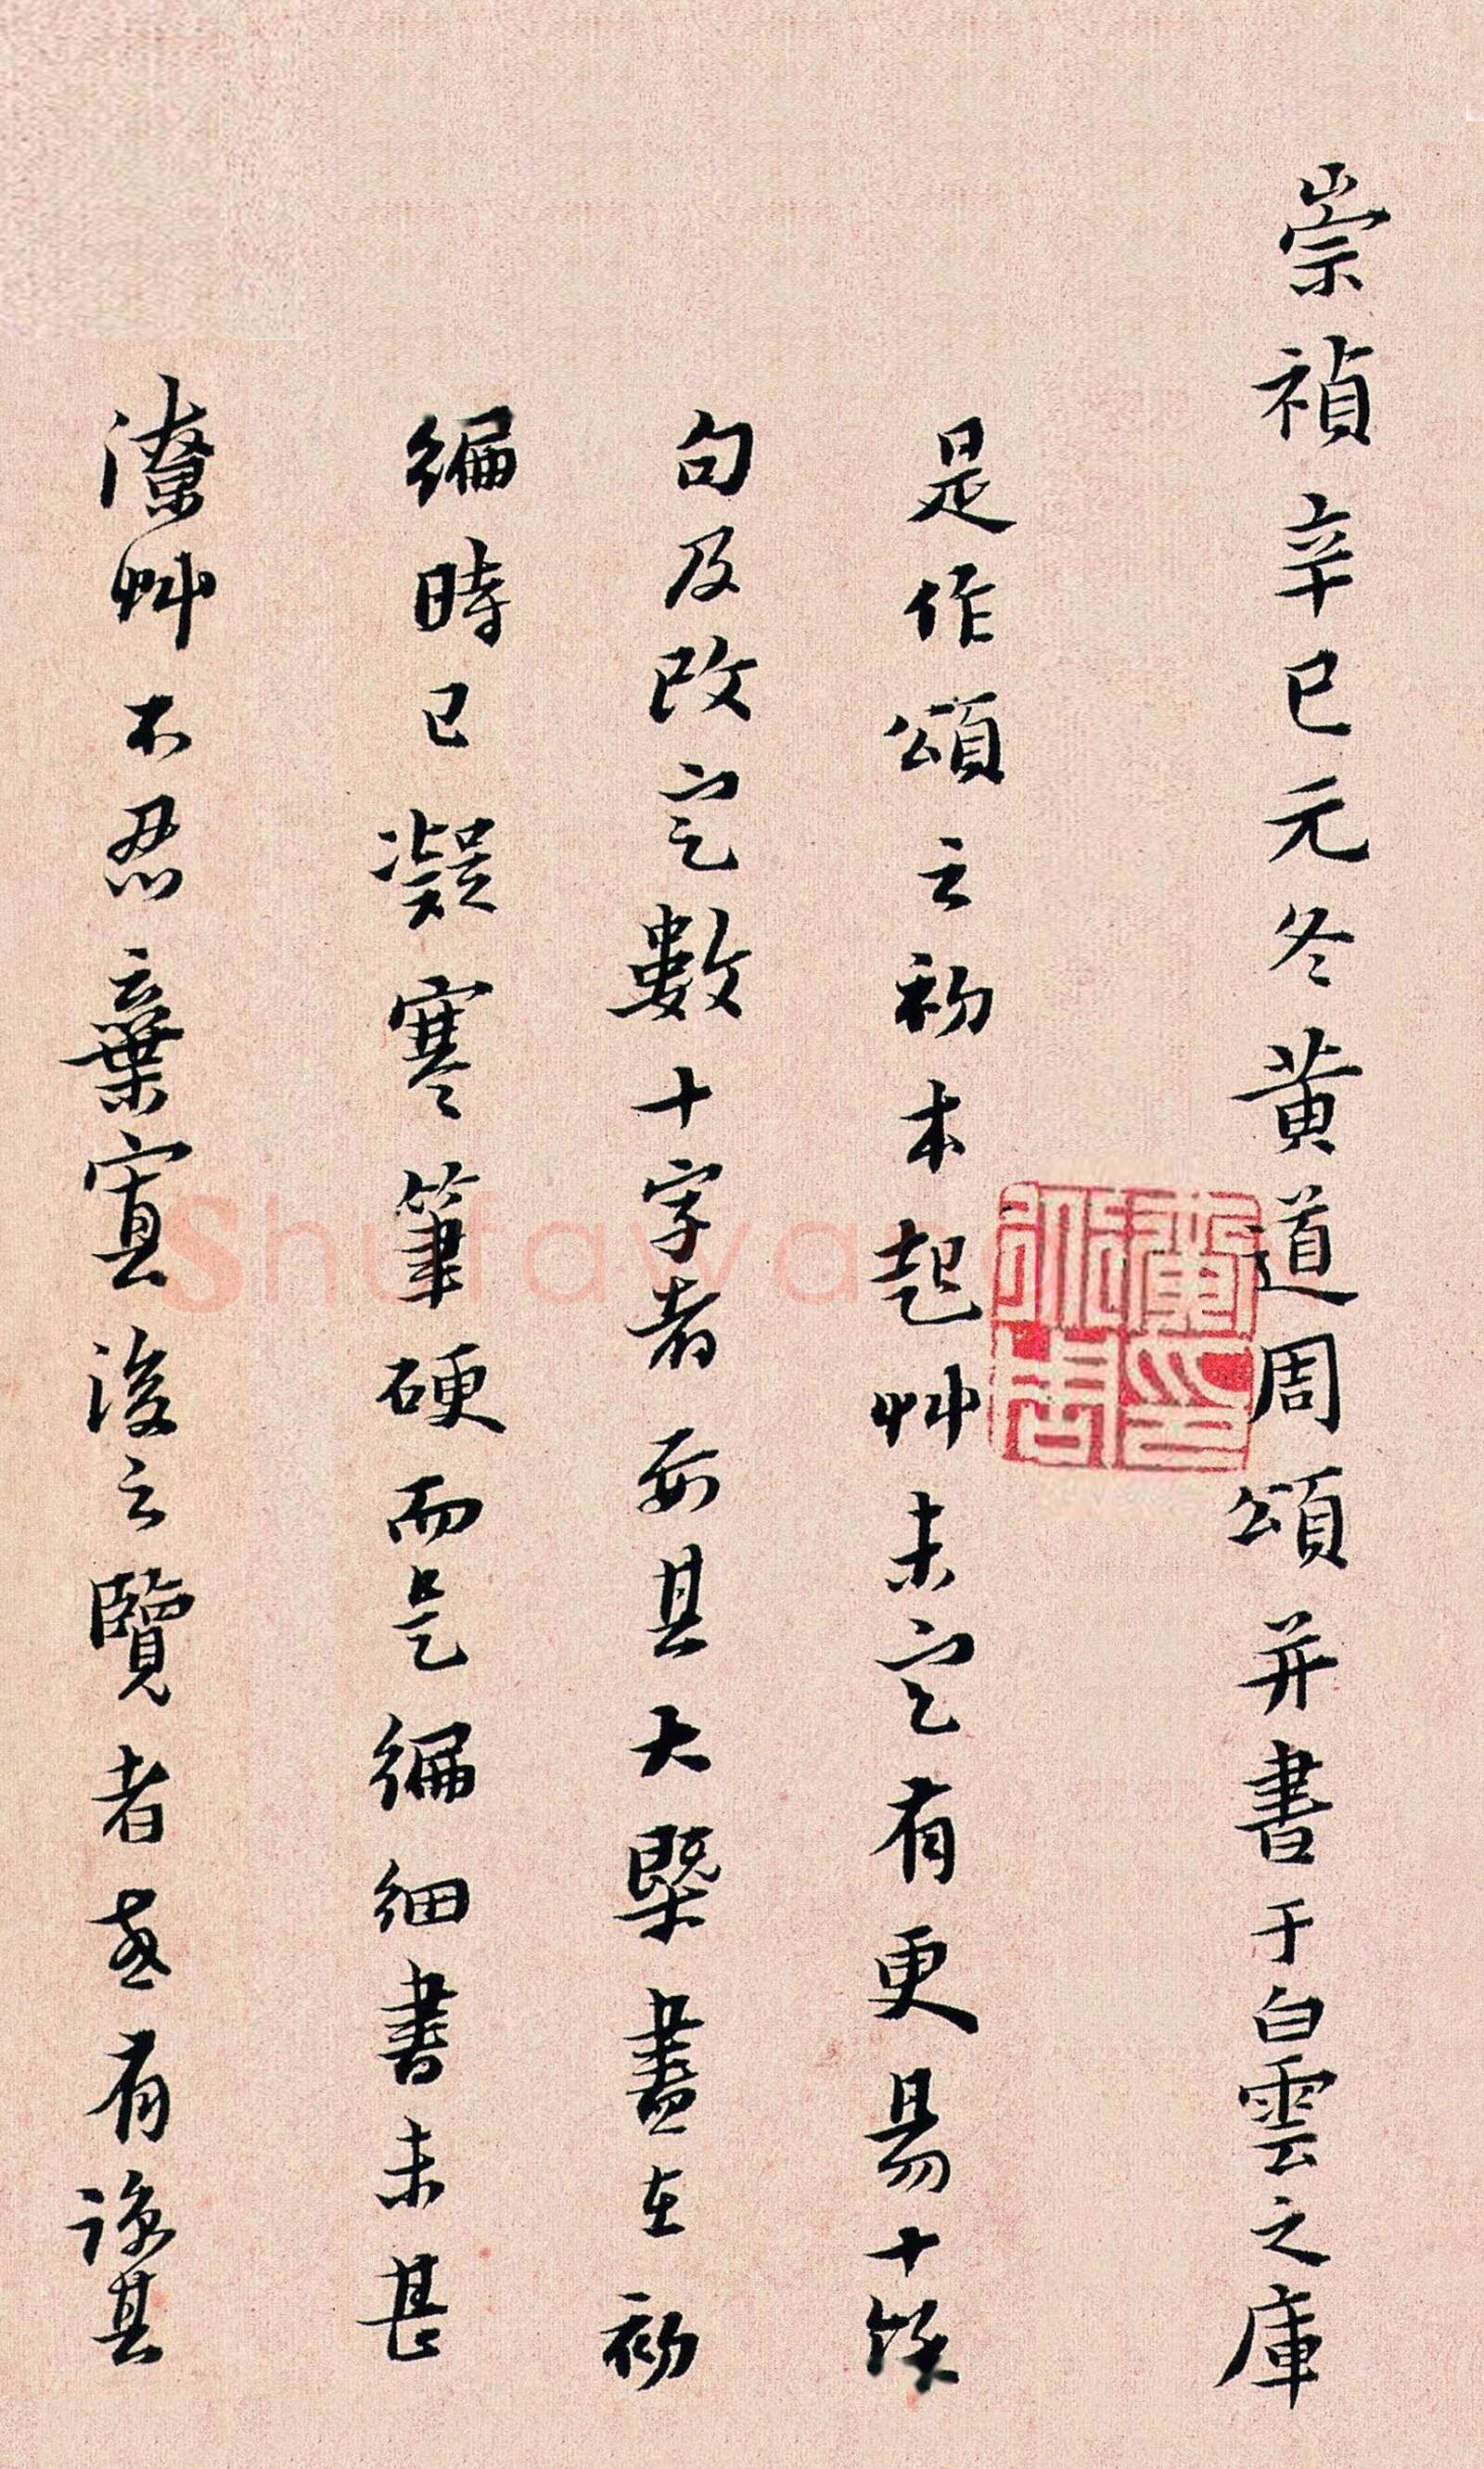 崇禎辛巳元冬黃道周頌并書于白雲之庫
是作頌之初本起艸未定有更易十餘
句及改定數十字者要其大槩盡在初
編時已凝寒筆硬而是編細書未甚
潦艸不忍棄寘後之覽者想有諒其
Shufawan